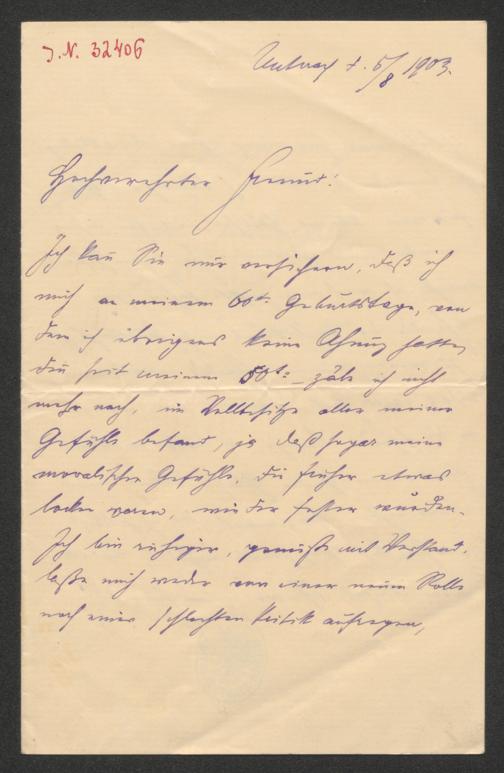 J. N. 32406
Unterach d. 5/8 1903.
Hochverehrter Freund!
Ich kann Sie nur versichern, daß ich
mich an meinem 60t. Geburtstage, von
dem ich übrigens keine Ahnung hatte,
denn seit meinem 50t. zäle ich nicht
mehr nach, im Vollbesitze aller meiner
Gefühle befand, ja daß sogar meine
moralischen Gefühle, die früher etwas
locker waren, wieder fester wurden.
Ich bin ruhiger, genieße mit Verstand,
laße mich weder von einer neuen Rolle
noch einer schlechten Kritik aufregen,